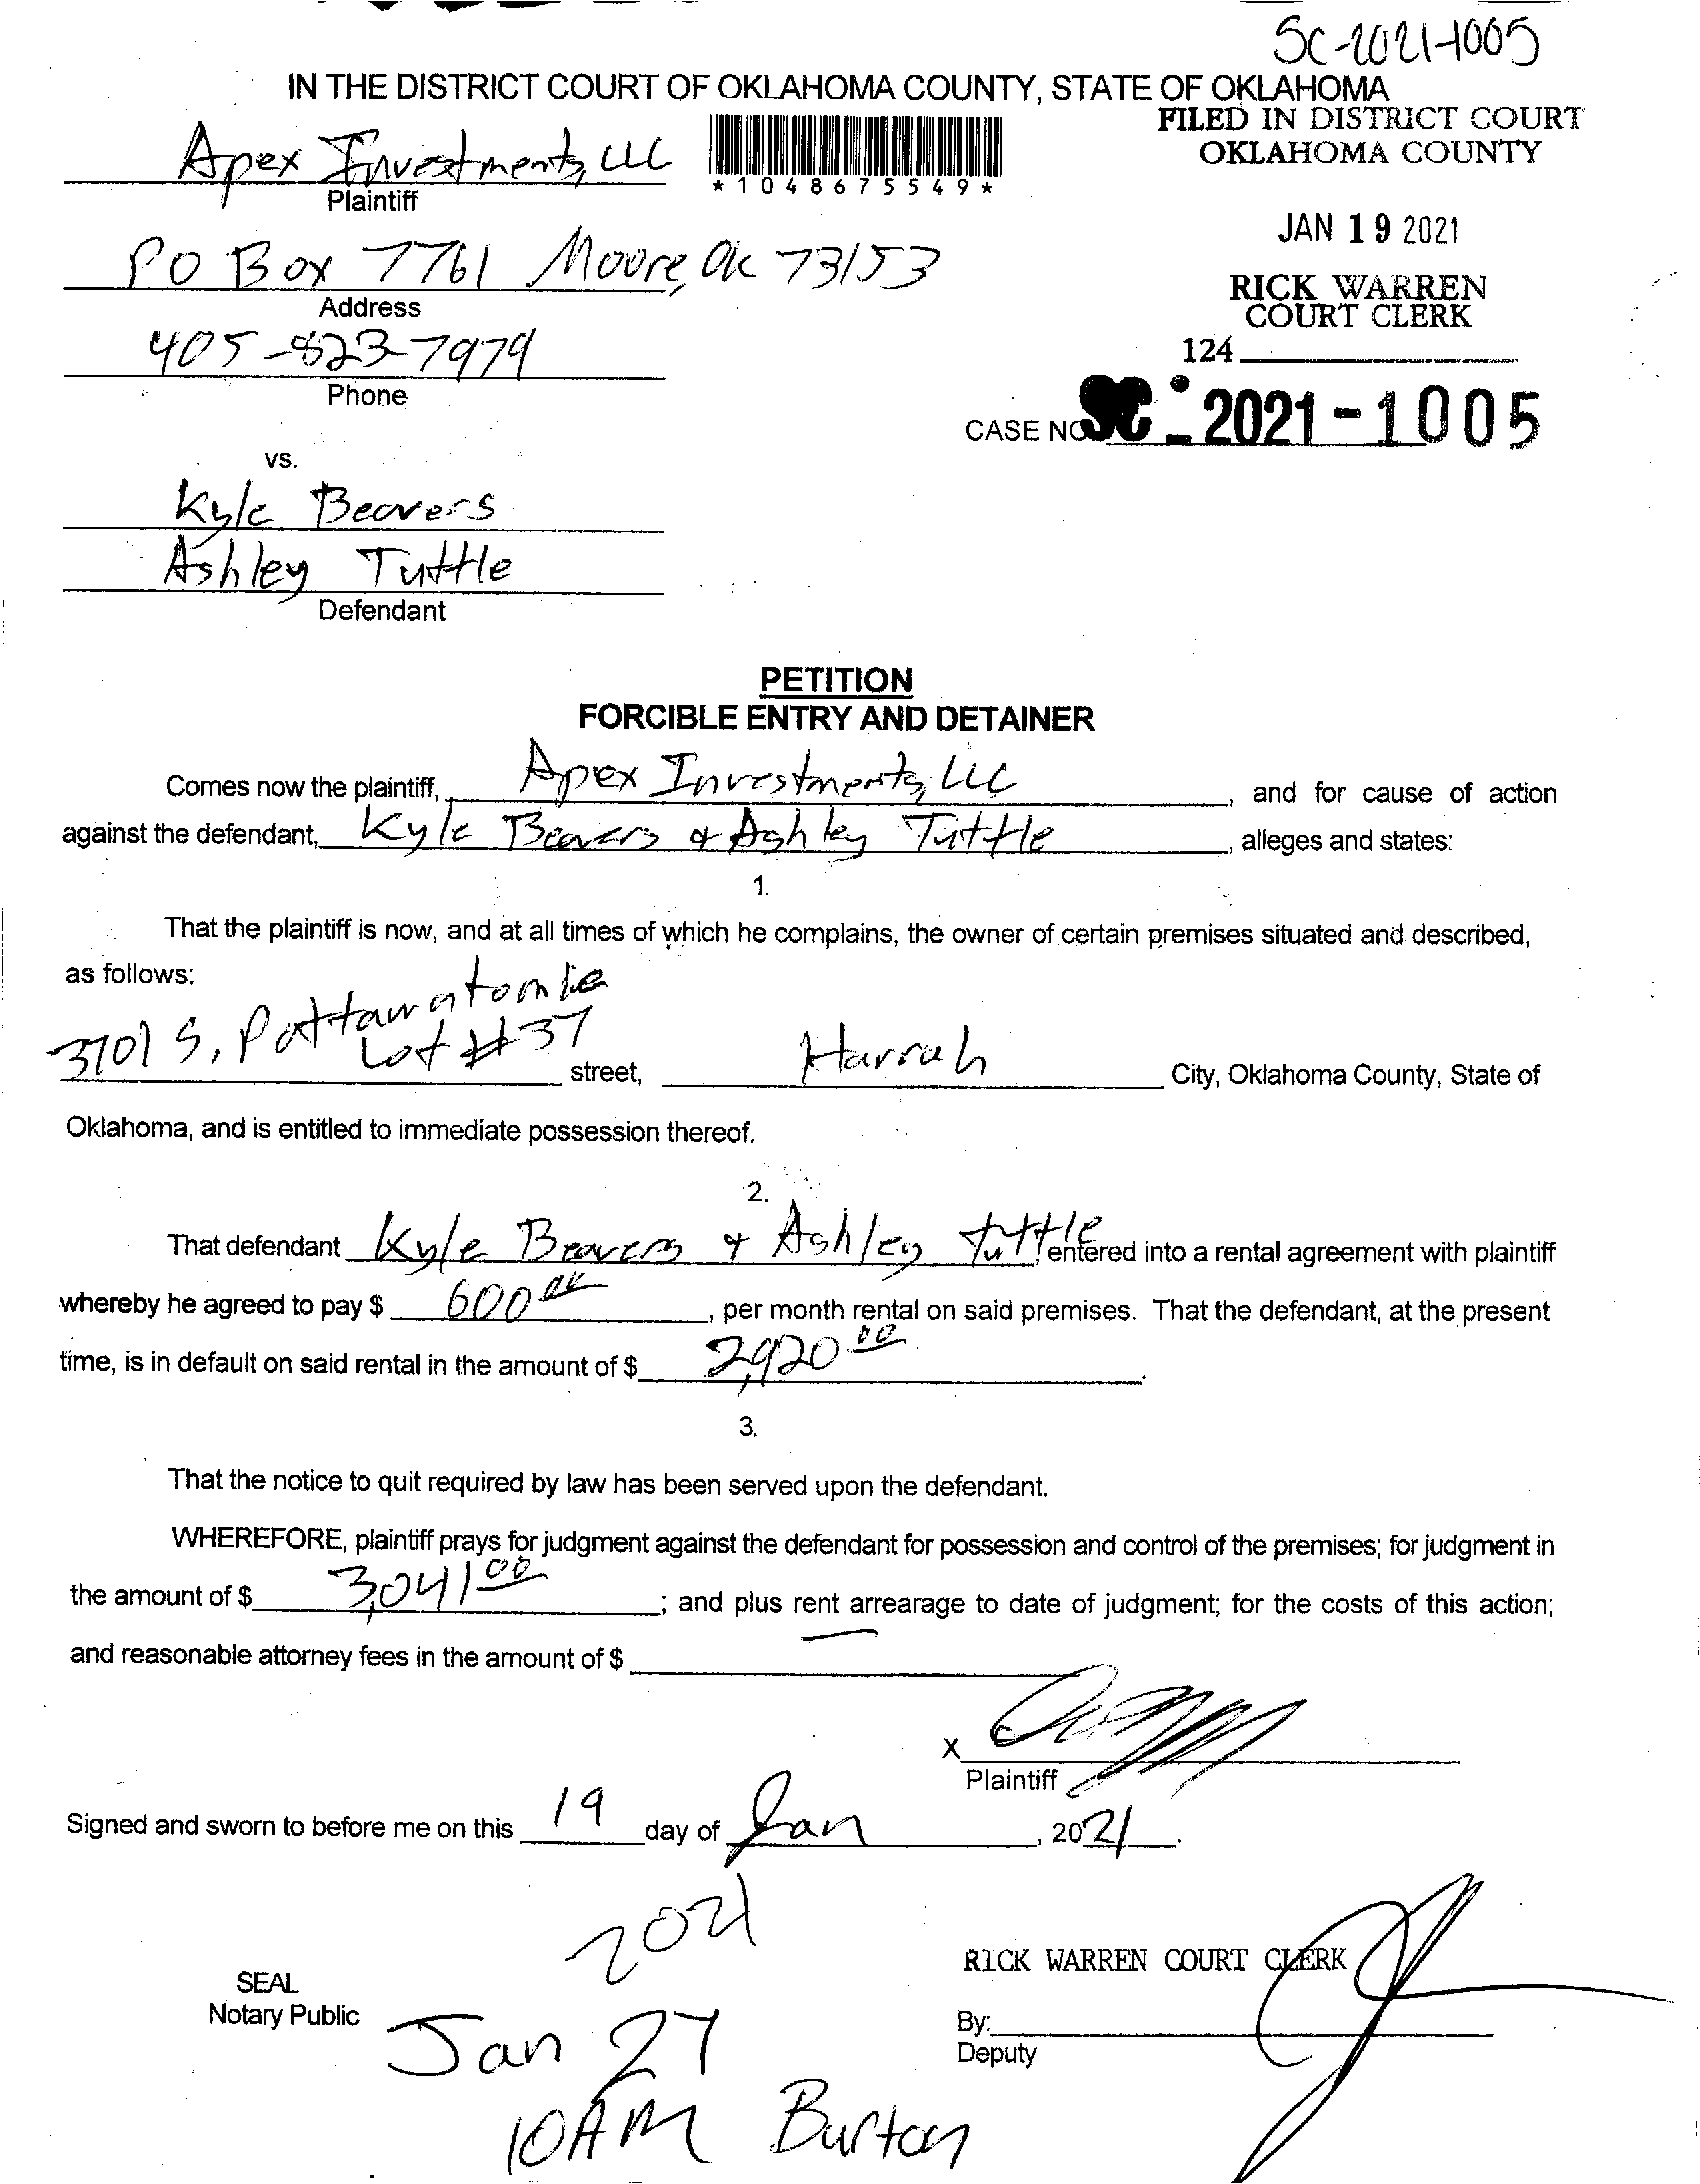 SC-2021-1005
IN THE DISTRICT COURT OF OKLAHOMA COUNTY, STATE OF OKLAHOMA
FILED IN DISTRICT COURT
OKLAHOMA COUNTY
Apex Investments, LLC
*1048675549*
Plaintiff
JAN 19 2021
PO Box 7761 Moore, Ok 73153
Address
RICK WARREN
COURT CLERK
405-823-7979
124
Phone
CASE NO. SC-2021-1005
vs.
Kyle Beavers
Ashley Tuttle
Defendant
PETITION
FORCIBLE ENTRY AND DETAINER
Comes now the plaintiff, Apex Investments, LLC, and for cause of action
against the defendant, Kyle Beavers & Ashley Tuttle, alleges and states:
1.
That the plaintiff is now, and at all times of which he complains, the owner of certain premises situated and described,
as follows:
3701 S. Pottawatomie
Lot #37 street, Harrah City, Oklahoma County, State of
Oklahoma, and is entitled to immediate possession thereof.
2.
That defendant Kyle Beavers & Ashley Tuttle, entered into a rental agreement with plaintiff
whereby he agreed to pay $ 600 00, per month rental on said premises. That the defendant, at the present
time, is in default on said rental in the amount of $ 2,920 00.
3.
That the notice to quit required by law has been served upon the defendant.
WHEREFORE, plaintiff prays for judgment against the defendant for possession and control of the premises; for judgment in
the amount of $ 3,041 00; and plus rent arrearage to date of judgment; for the costs of this action;
and reasonable attorney fees in the amount of $
X
Plaintiff
Signed and sworn to before me on this 19 day of Jan, 2021.
2021
RICK WARREN COURT CLERK
SEAL
Notary Public
Jan 27
By:
Deputy
10AM Burton